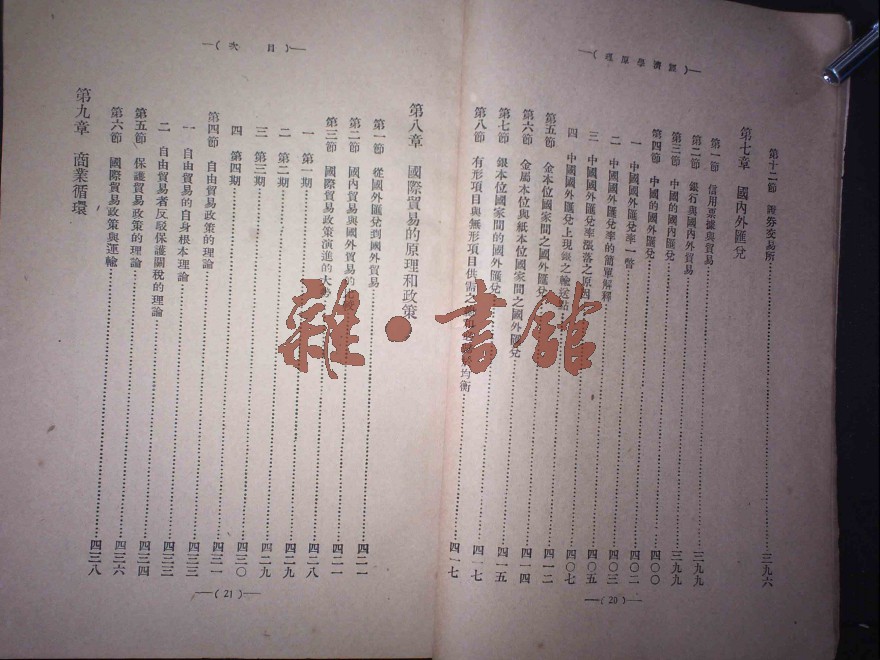 —(經濟學原理)—
第十二節 證券交易所……三九六
第七章 國內外匯兌
第一節 信用票據與貿易……三九九
第二節 銀行與國內外貿易……三九九
第三節 中國的國內匯兌……四〇〇
第四節 中國的國外匯兌……四〇二
一 中國國外匯兌率一瞥……四〇三
二 中國國外匯兌率的簡單解釋……四〇五
三 中國國外匯兌率漲落之原因……四〇七
四 中國國外匯兌上現銀之輸送點……四一二
第五節 金本位國家間之國外匯兌……四一四
第六節 金屬本位與紙本位國家間之國外匯兌……四一五
第七節 銀本位國家間的國外匯兌……四一七
第八節 有形項目與無形項目供需之均衡……四一七
—(20)—
—(目 次)—
第八章 國際貿易的原理和政策
第一節 從國外匯兌到國外貿易……四二一
第二節 國內貿易與國外貿易的……四二一
第三節 國際貿易政策演進的大……四二八
一 第一期……四二九
二 第二期……四二九
三 第三期……四三〇
四 第四期……四三一
第四節 自由貿易政策的理論……四三三
一 自由貿易的自身根本理論……四三三
二 自由貿易者反駁保護關稅的理論……四三四
第五節 保護貿易政策的理論……四三六
第六節 國際貿易政策與運輸……四三八
第九章 商業循環
—(21)—
雜·書館